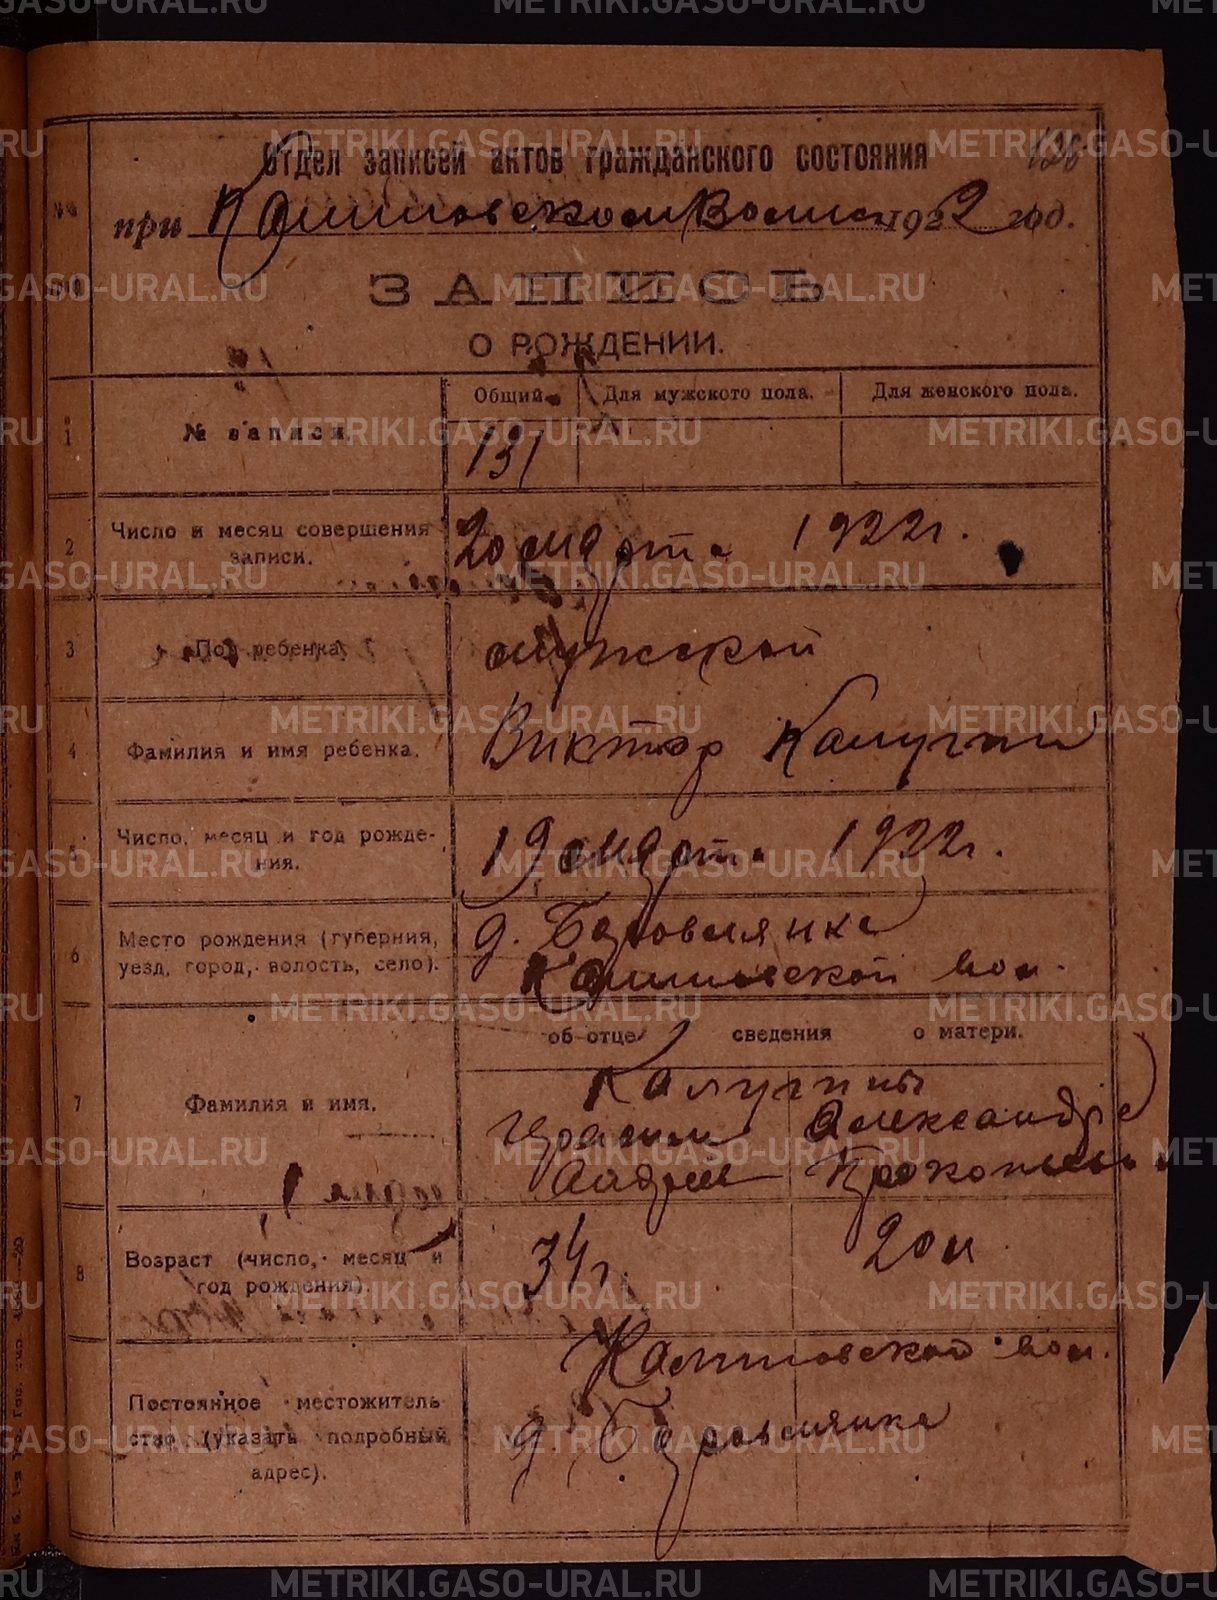 196
Отдел записей актов гражданского состояния
при 1922 год.
ЗАПИСЬ
О РОЖДЕНИИ.
Общий. Для мужского пола. Для женского пола.
1 № записи. 131
2 Число и месяц совершения записи. 20 марта 1922 г.
3 Пол ребенка. мужской
4 Фамилия и имя ребенка. Виктор Калугин
5 Число, месяц и год рожде-
ния. 19 марта 1922 г.
6 Место рождения (губерния, д. Боровлянка
уезд, город, волость, село). вол.
об отце сведения о матери.
Калугины
7 Фамилия и имя. Герасим Александра
Андреев
8 Возраст (число, месяц и 34 г. 20 л
год рождения).
вол.
Постоянное местожитель-
ство (указать подробный д. Боровлянка
адрес).
METRIKI.GASO-URAL.RU